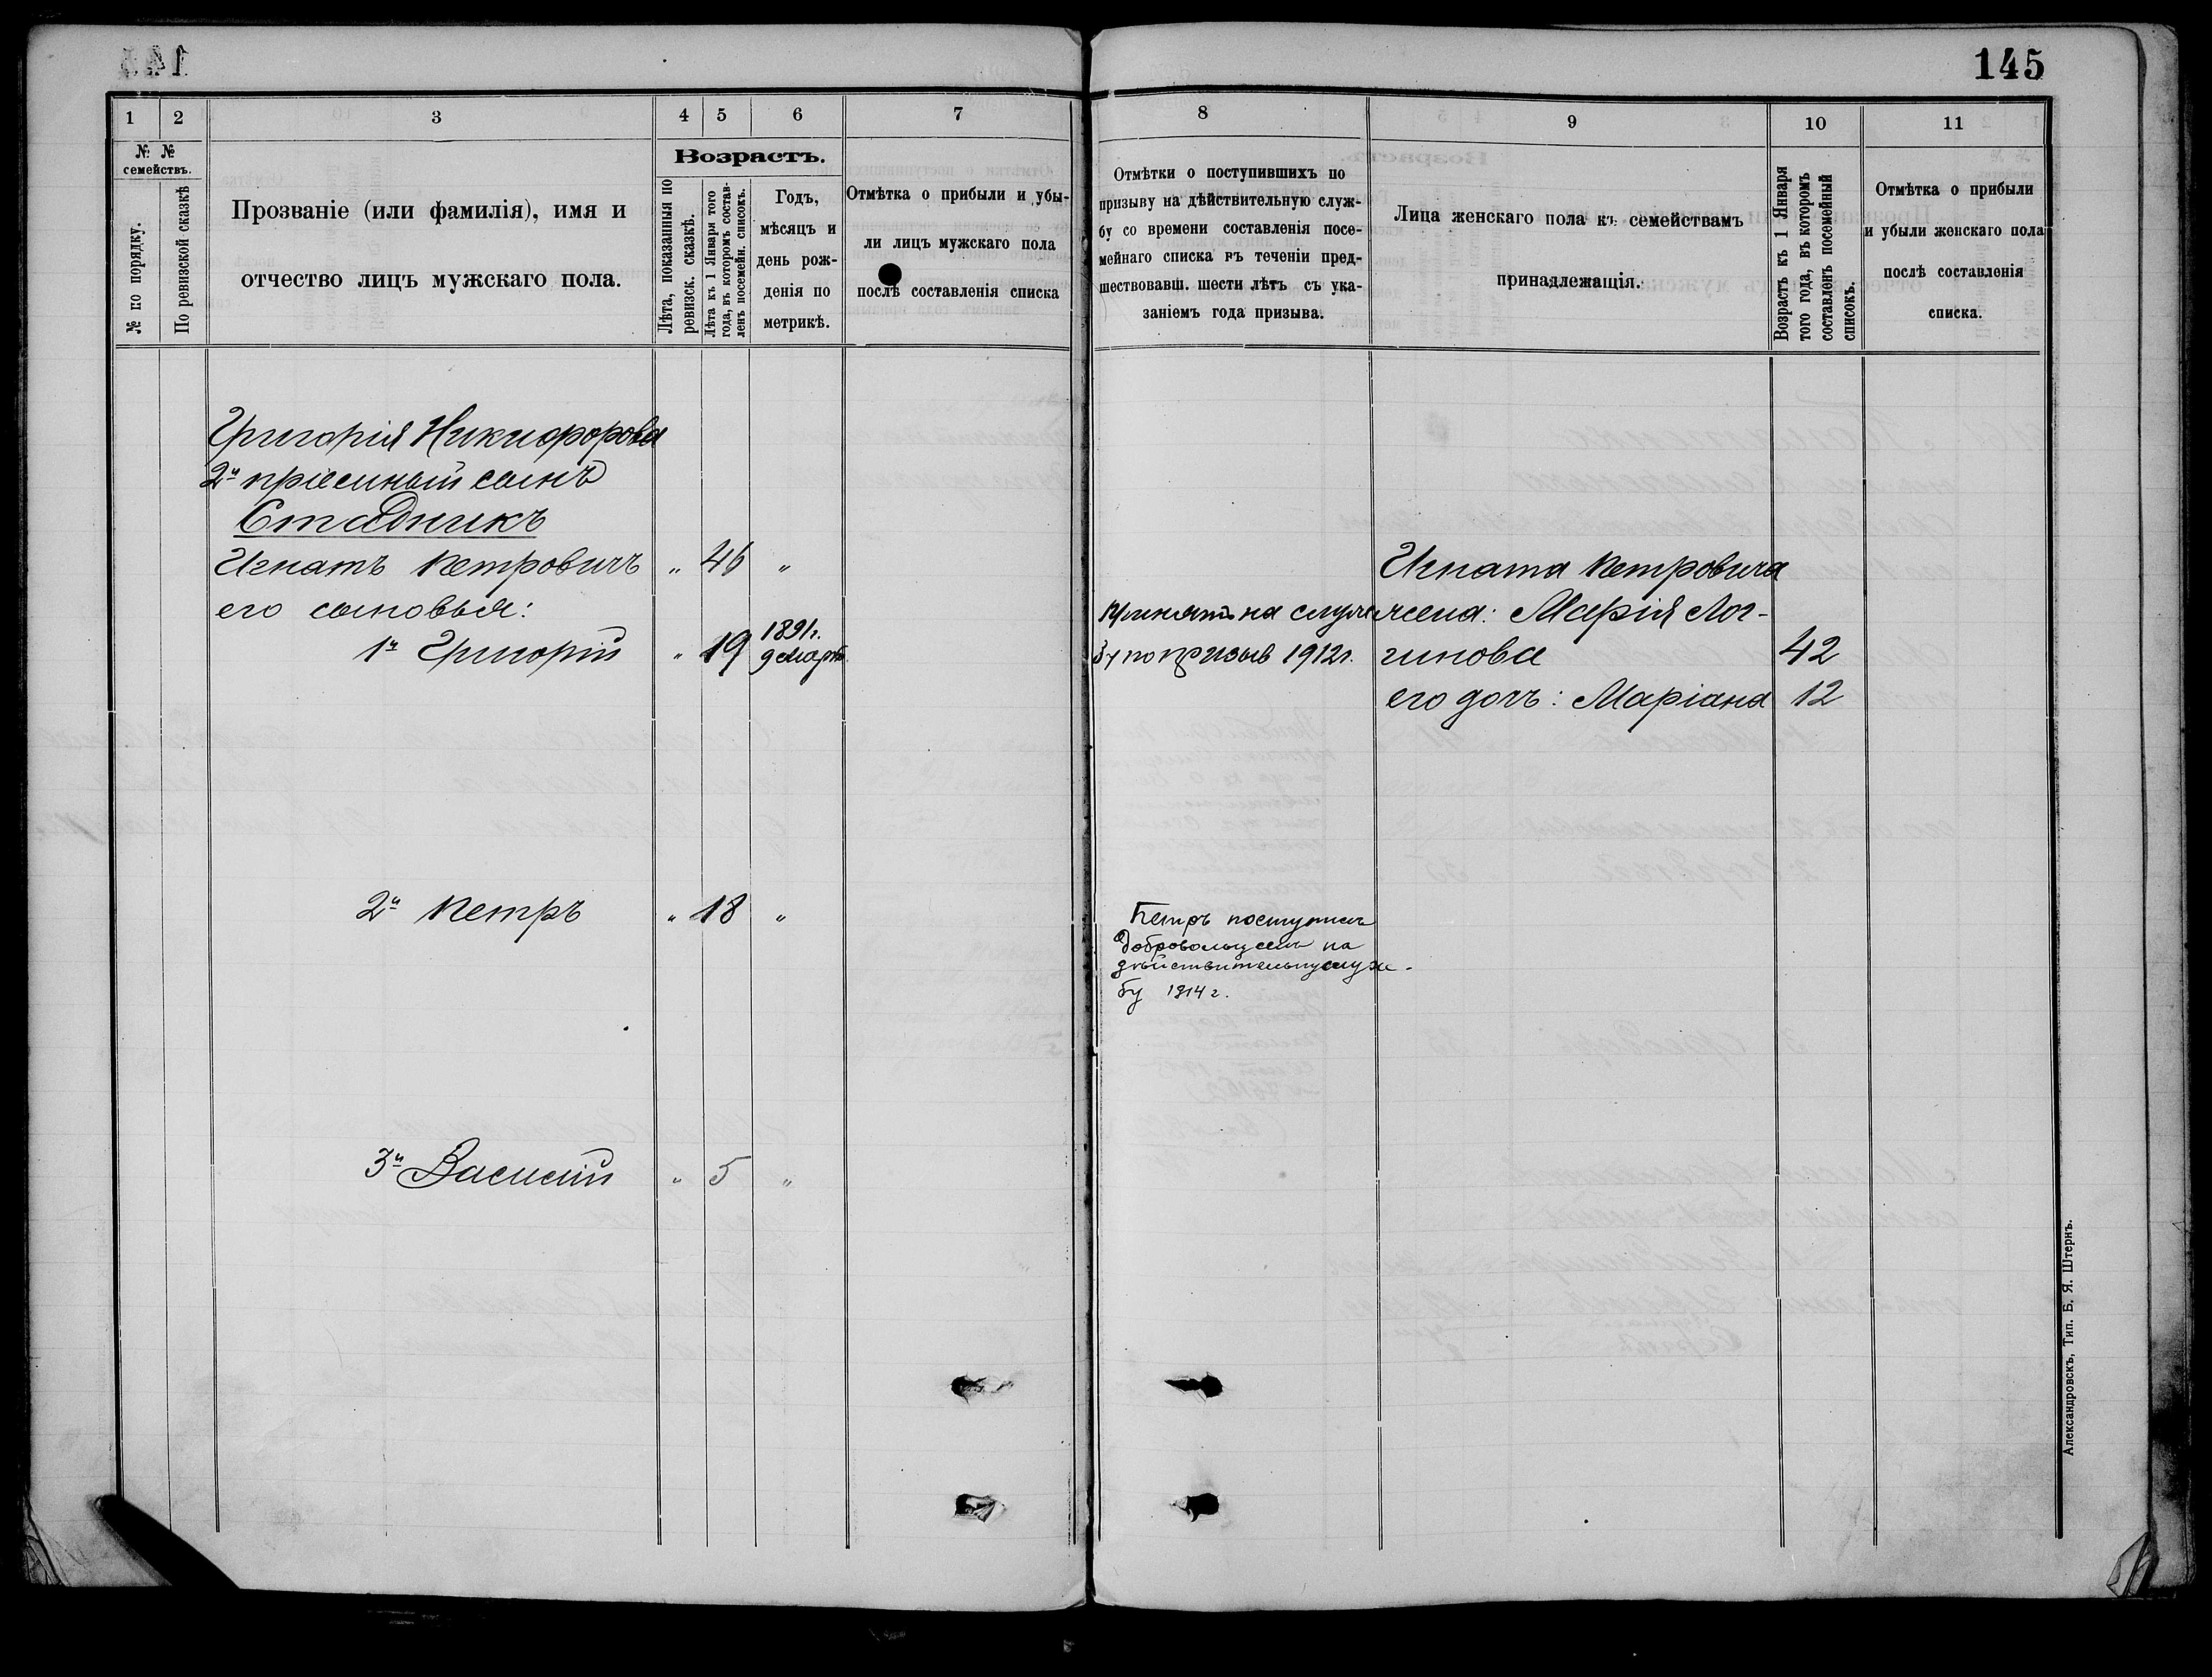 145
1
2
3
4
5
6
7
№ №
семействъ.
№ по порядку.
По ревизской сказкѣ
Прозваніе (или фамилія), имя и
отчество лицъ мужскаго пола.
Возрастъ.
Лѣта, показанныя по
ревизск. сказкѣ.
Лѣта къ 1 Января того
года, въ которомъ состав-
ленъ посемейн. списокъ.
Годъ,
мѣсяцъ и
день рож-
денія по
метрикѣ.
Отмѣтка о прибыли и убы-
ли лицъ мужскаго пола
послѣ составленія списка
Григорія Никифорова
2й пріемный сынъ
Стадникъ
Игнатъ Петровичъ " 46 "
его сыновья:
1й Григорій " 19 1891г. 9 Марта
2й Петръ " 18 "
3й Василій " 5 "
8
9
10
11
Отмѣтки о поступившихъ по
призыву на дѣйствительную служ-
бу со времени составленія посе-
мейнаго списка въ теченіи пред-
шествовавш. шести лѣтъ съ ука-
заніемъ года призыва.
Лица женскаго пола къ семействамъ
принадлежащія.
Возрастъ къ 1 Января
того года, въ которомъ
составленъ посемейный
списокъ.
Отмѣтка о прибыли
и убыли женскаго пола
послѣ составленія
списка.
Принятъ на служ
бу по призыв 1912г.
Петръ поступилъ
добровольцемъ на
дѣйствительну служ-
бу 1914 г.
Игната Петровича
жена: Марія Лог-
гинова 42
его дочь: Маріана 12
Александровскъ, Тип. Б. Я. Штернъ.